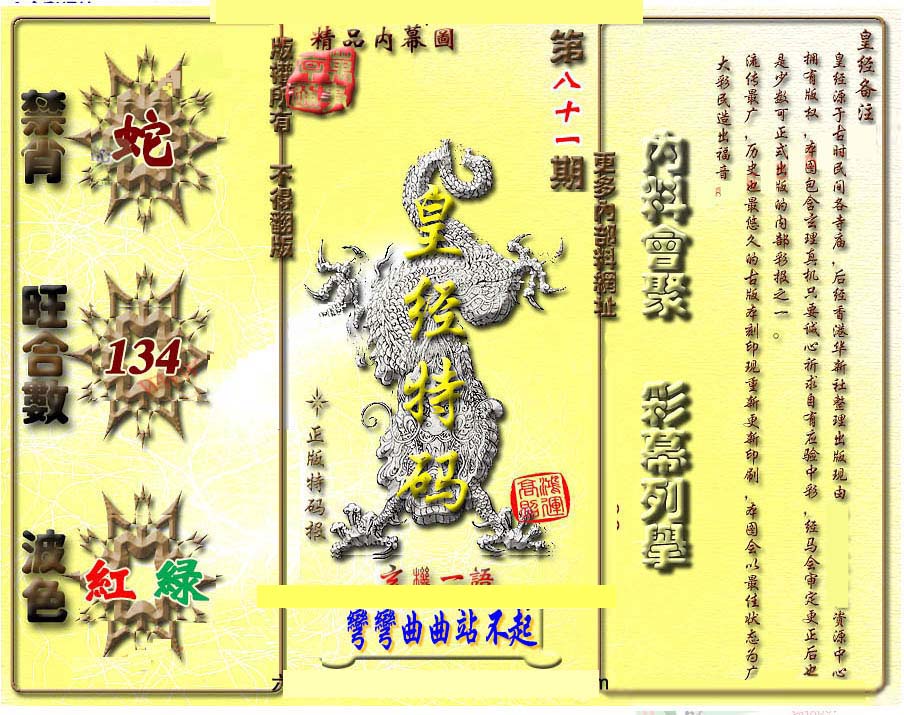 精品内幕圖
第八十一期
版權所有 不得翻版
更多內部料網址
禁肖
蛇
旺合數
134
波色
紅 綠
皇经特码
正版特码报
鴻運高照
玄機一語
彎彎曲曲站不起
內料會聚 彩幕列舉
皇经备注
皇经源于古时民间各寺庙,后经香港华新社整理出版现由 资源中心
拥有版权,本图包含玄理真机只要诚心祈求自有应验中彩,经马会审定更正后也
是少数可正式出版的内部彩报之一。
流传最广,历史也最悠久的古版本刻印现重新更新印刷,本图会以最佳状态为广
大彩民造出福音